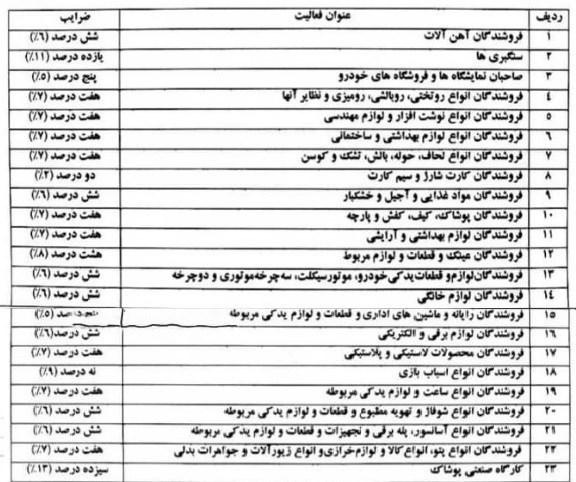 ردیف عنوان فعالیت ضرایب
۱ فروشندگان آهن آلات شش درصد (۶٪)
۲ سنگبری ها یازده درصد (۱۱٪)
۳ صاحبان نمایشگاه ها و فروشگاه های خودرو پنج درصد (۵٪)
۴ فروشندگان انواع روتختی، روبالشی، رومیزی و نظایر آنها هفت درصد (۷٪)
۵ فروشندگان انواع نوشت افزار و لوازم مهندسی هفت درصد (۷٪)
۶ فروشندگان انواع لوازم بهداشتی و ساختمانی هفت درصد (۷٪)
۷ فروشندگان انواع لحاف، حوله، بالش، تشک و کوسن هفت درصد (۷٪)
۸ فروشندگان کارت شارژ و سیم کارت دو درصد (۲٪)
۹ فروشندگان مواد غذایی و آجیل و خشکبار شش درصد (۶٪)
۱۰ فروشندگان پوشاک، کیف، کفش و پارچه هفت درصد (۷٪)
۱۱ فروشندگان لوازم بهداشتی و آرایشی هفت درصد (۷٪)
۱۲ فروشندگان عینک و قطعات و لوازم مربوط هشت درصد (۸٪)
۱۳ فروشندگان لوازم و قطعات یدکی خودرو، موتورسیکلت، سه چرخه موتوری و دوچرخه شش درصد (۶٪)
۱۴ فروشندگان لوازم خانگی شش درصد (۶٪)
۱۵ فروشندگان رایانه و ماشین های اداری و قطعات و لوازم یدکی مربوطه (۵٪)
۱۶ فروشندگان لوازم برقی و الکتریکی شش درصد(۶٪)
۱۷ فروشندگان محصولات لاستیکی و پلاستیکی هفت درصد (۷٪)
۱۸ فروشندگان انواع اسباب بازی نه درصد (۹٪)
۱۹ فروشندگان انواع ساعت و لوازم یدکی مربوطه هفت درصد (۷٪)
۲۰ فروشندگان انواع شوفاژ و تهویه مطبوع و قطعات و لوازم یدکی مربوطه شش درصد (۶٪)
۲۱ فروشندگان انواع آسانسور، پله برقی و تجهیزات و قطعات و لوازم یدکی مربوطه شش درصد (۶٪)
۲۲ فروشندگان انواع پتو، انواع کالا و لوازم خرازی و انواع زیورآلات و جواهرات بدلی هفت درصد (۷٪)
۲۳ کارگاه صنعتی پوشاک سیزده درصد (۱۳٪)